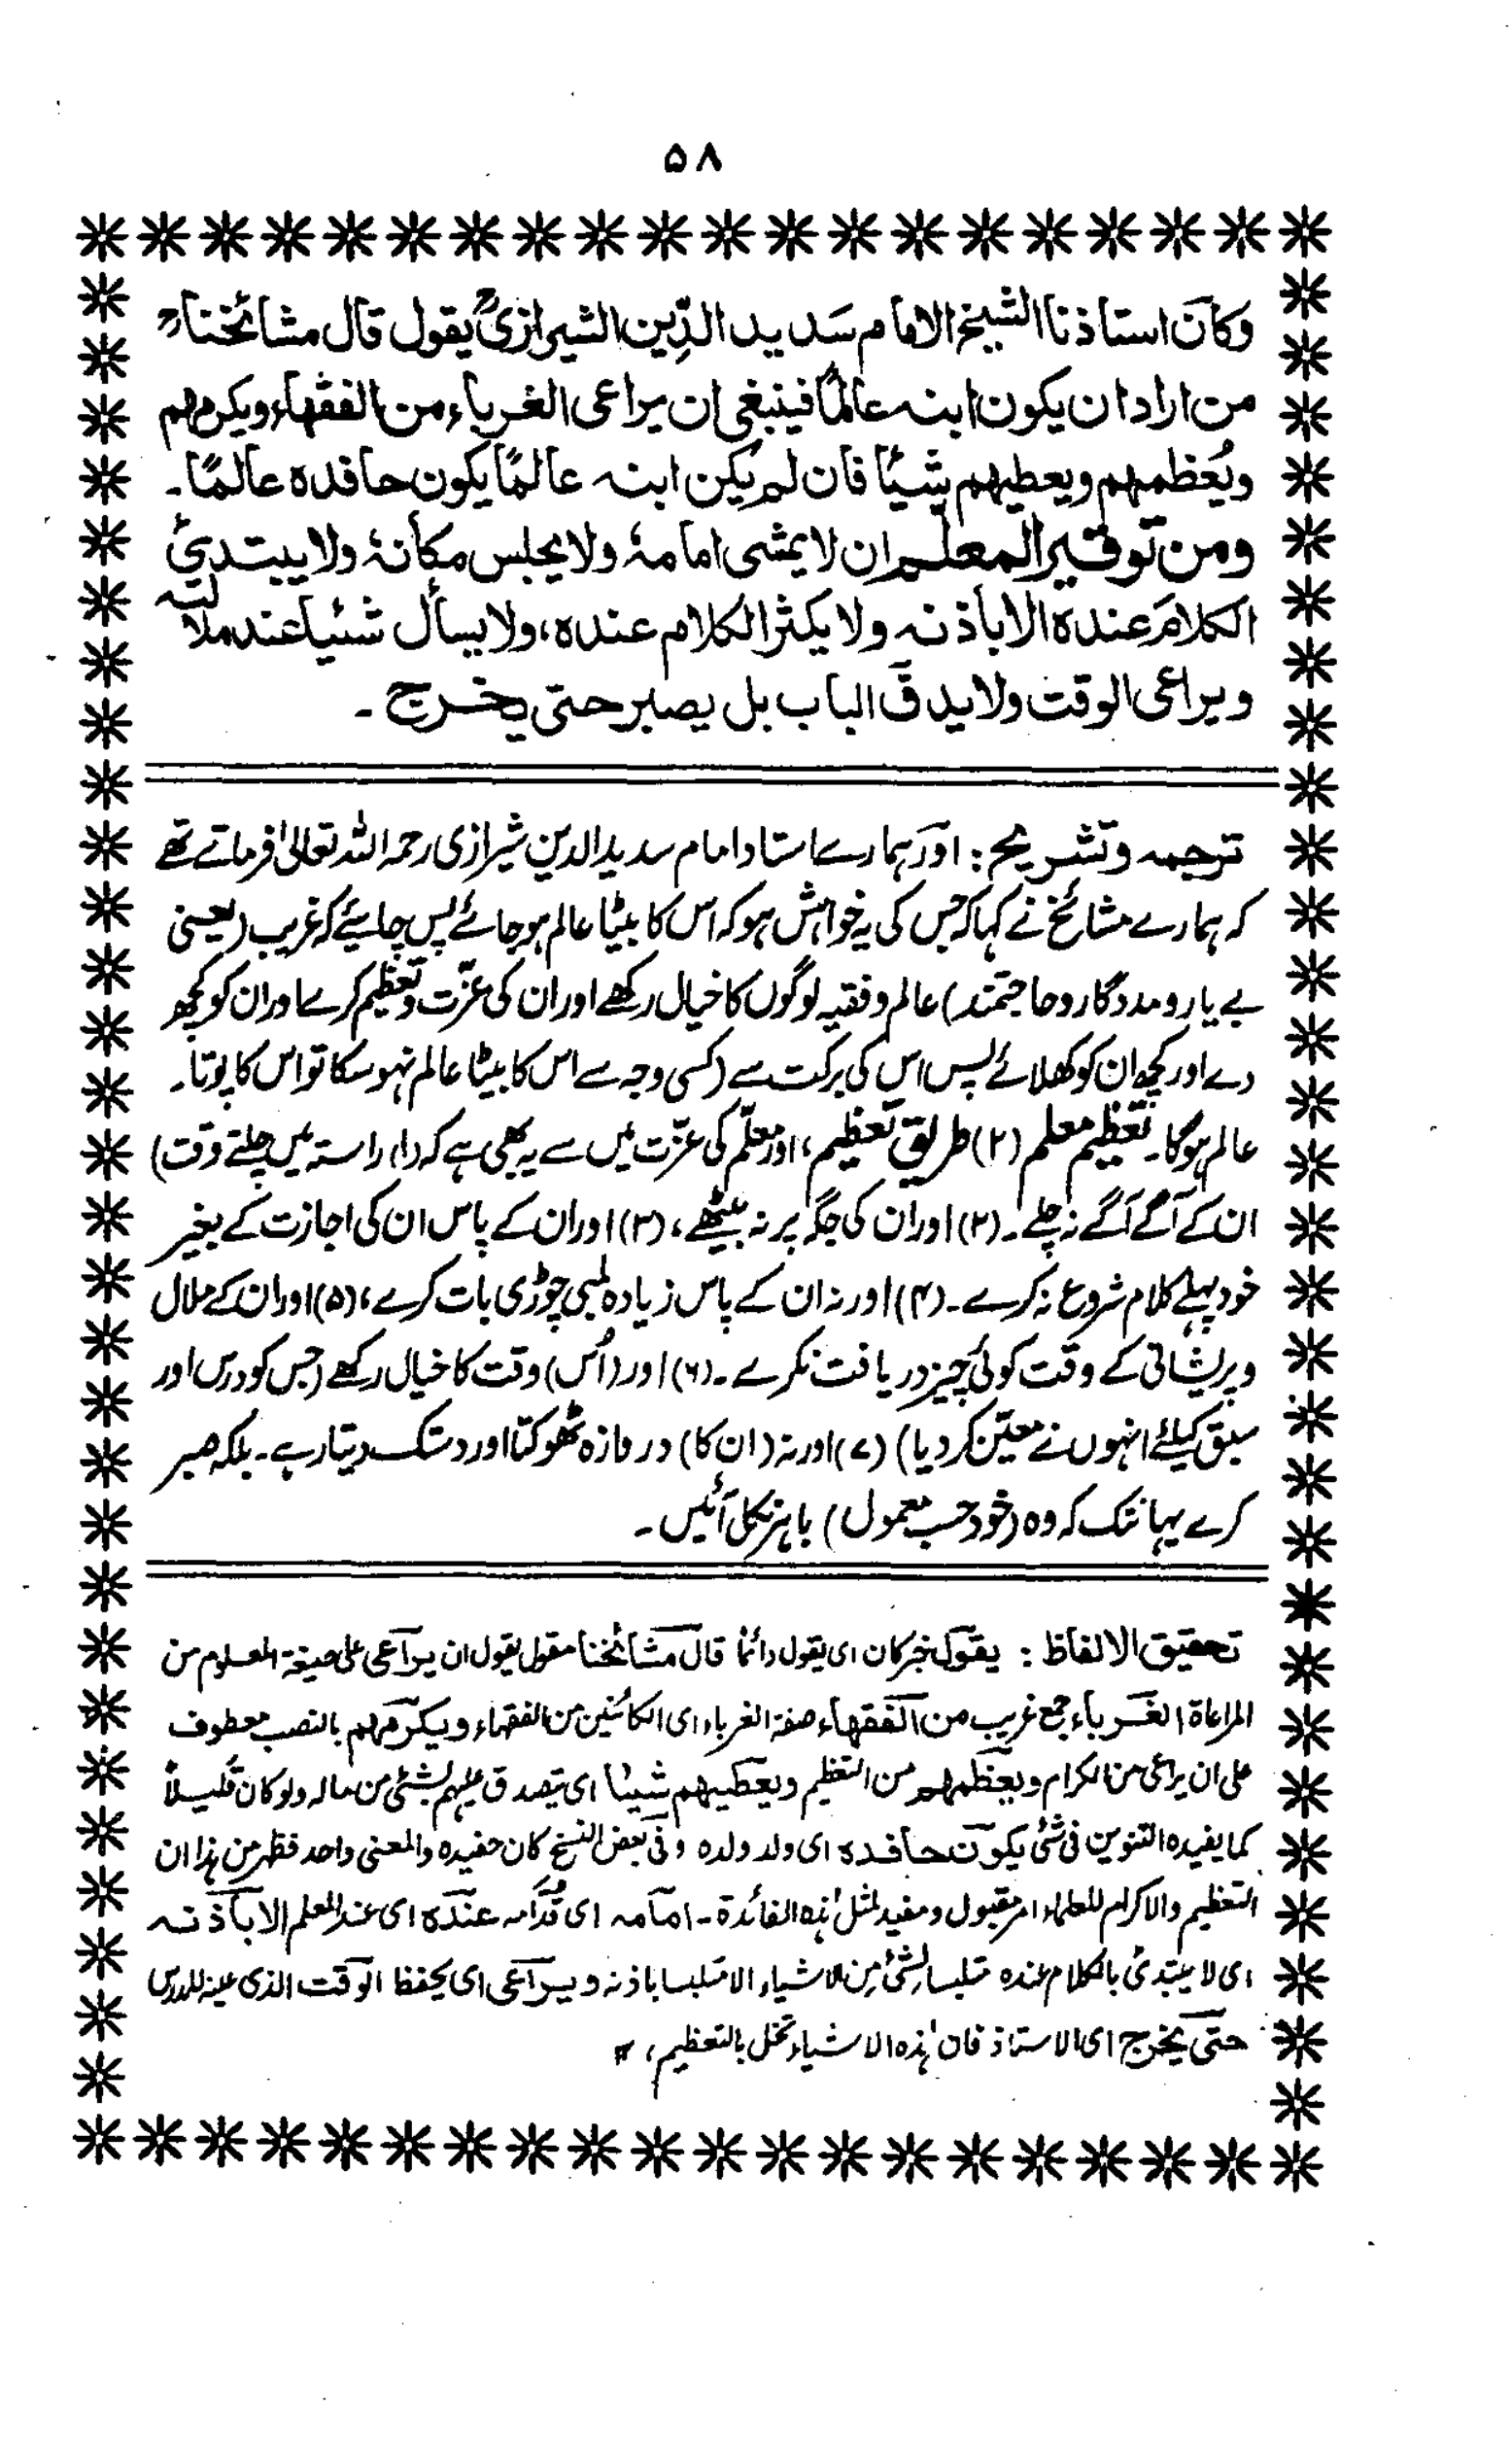 ۵۸
وكان استاذنا الشيخ الامام سَديد الدِّين الشيرازیؒ يقول قال مشائخناؒ
من اراد ان يكون ابنه عالمًا فينبغى ان يراعى الغرباء من الفقهاء ويكرمهم
ويُعظمهم ويعطيهم شيئًا فان لم يكن ابنه عالمًا يكون حافده عالمًا۔
ومن توقير المعلم ان لا يمشى امامهٗ ولا يجلس مكانهٗ ولا يبتدئ
الكلامَ عندہ الا باذنہ ولا يكثر الكلام عندہ، ولا يسأل شيئا عند ملالته
ويراعى الوقت ولا يدقَّ الباب بل يصبر حتى يخرج ۔
ترجمہ وتشریح : اور ہمارے استاد امام سدید الدین شیرازی رحمہ اللہ تعالیٰ فرماتے تھے
کہ ہمارے مشائخ نے کہا کہ جس کی یہ خواہش ہو کہ اس کا بیٹا عالم ہو جائے پس چاہیئے کہ غریب (یعنی
بے یارو مددگار و حاجتمند) عالم و فقیہ لوگوں کا خیال رکھے اور ان کی عزّت و تعظیم کرے اور ان کو کچھ
دے اور کچھ ان کو کھلائے پس اس کی برکت سے (کسی وجہ سے اس کا بیٹا عالم نہو سکا تو اس کا پوتا۔
عالم ہوگا۔ تعظیم معلم (۲) طریق تعظیم، اور معلّم کی عزّت میں سے یہ بھی ہے کہ (۱) راستہ میں چلتے وقت)
ان کے آگے آگے نہ چلے۔ (۲) اور ان کی جگہ پر نہ بیٹھے، (۳) اور ان کے پاس ان کی اجازت کے بغیر
خود پہلے کلام شروع نہ کرے۔ (۴) اور نہ ان کے پاس زیادہ لمبی چوڑی بات کرے، (۵) اور ان کے ملال
و پریشانی کے وقت کوئی چیز دریافت نکرے ۔ (۶) اور (اُس) وقت کا خیال رکھے (جس کو درس اور
سبق کیلئے انہوں نے معیّن کر دیا) (۷) اور نہ (ان کا) دروازہ ٹھوکتا اور دستک دیتا رہے۔ بلکہ صبر
کرے یہانتک کہ وہ (خود حسب معمول) باہر نکل آئیں ۔
تحقيق الالفاظ : يقول خبر كان اى يقول دائما قال مشائخنا مقولہ يقول ان يراعى على صيغۃ المعلوم من
المراعاة الغرباء جمع غريب من الفقهاء صفۃ الغرباء اى الكائنين من الفقهاء ويكرمهم بالنصب معطوف
على ان يراعى من الاكرام ويعظمهم من التعظيم ويعطيهم شيئا اى يتصدق عليهم بشئ من مالہ ولو كان قليلاً
كما يفيده التنوين فى شئ يكون حافده اى ولد ولده وفى بعض النسخ كان حفيده والمعنى واحد فظهر من هذا ان
التعظيم والاكرام للعلماء امر مقبول ومفيد لمثل هذه الفائدة ۔ امامہ اى قُدّامہ عنده اى عند المعلم الا باذنہ
اى لا يبتدئ بالكلام عنده متلبسا بشئ من الاشياء الا متلبسا باذنہ ويراعى اى يحفظ الوقت الذى عينہ للدرس
حتى يخرج اى الاستاذ فان هذه الاشياء تخل بالتعظيم،